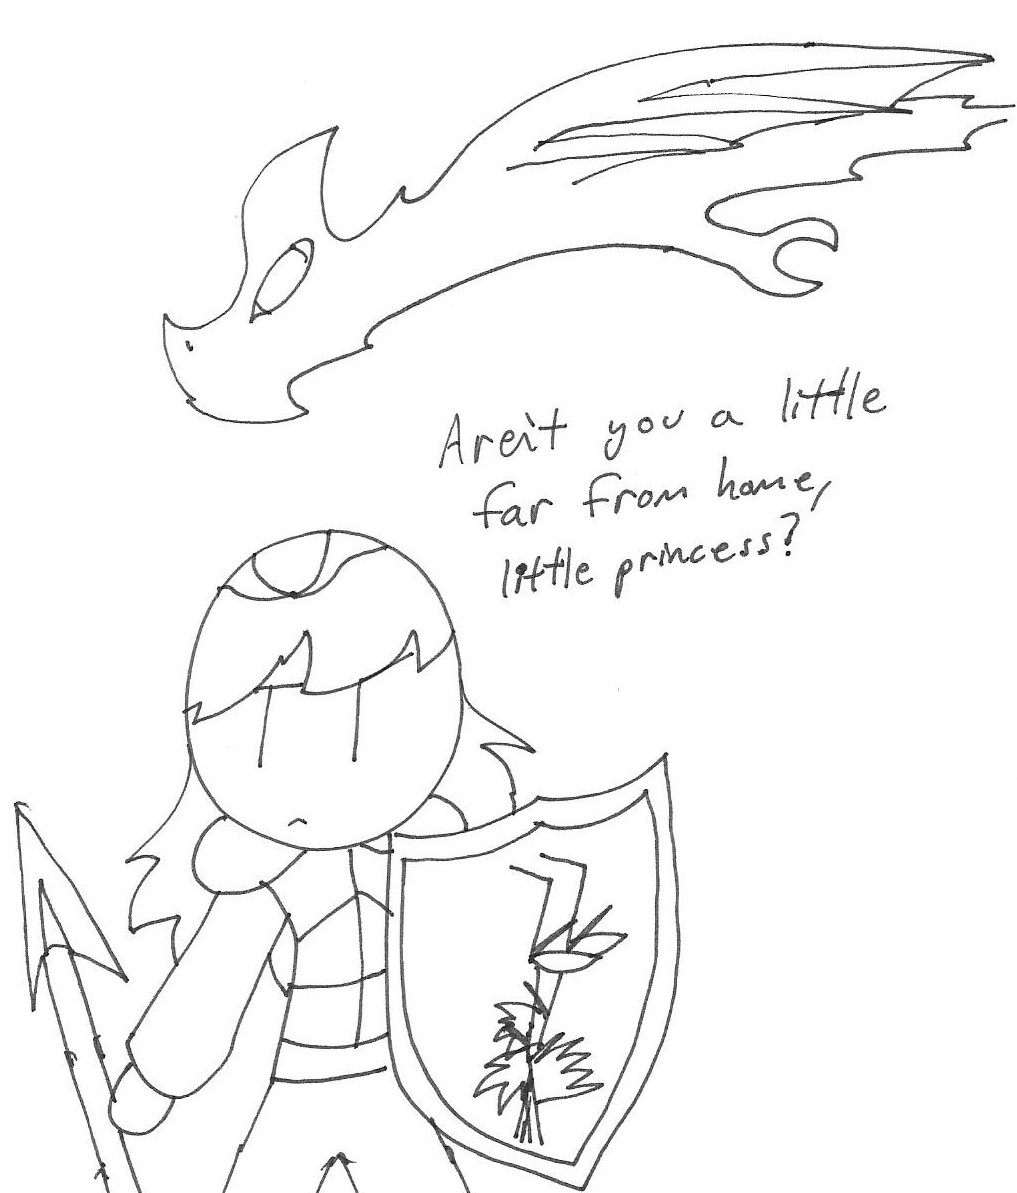 Aren't you a little
far from home,
little princess?